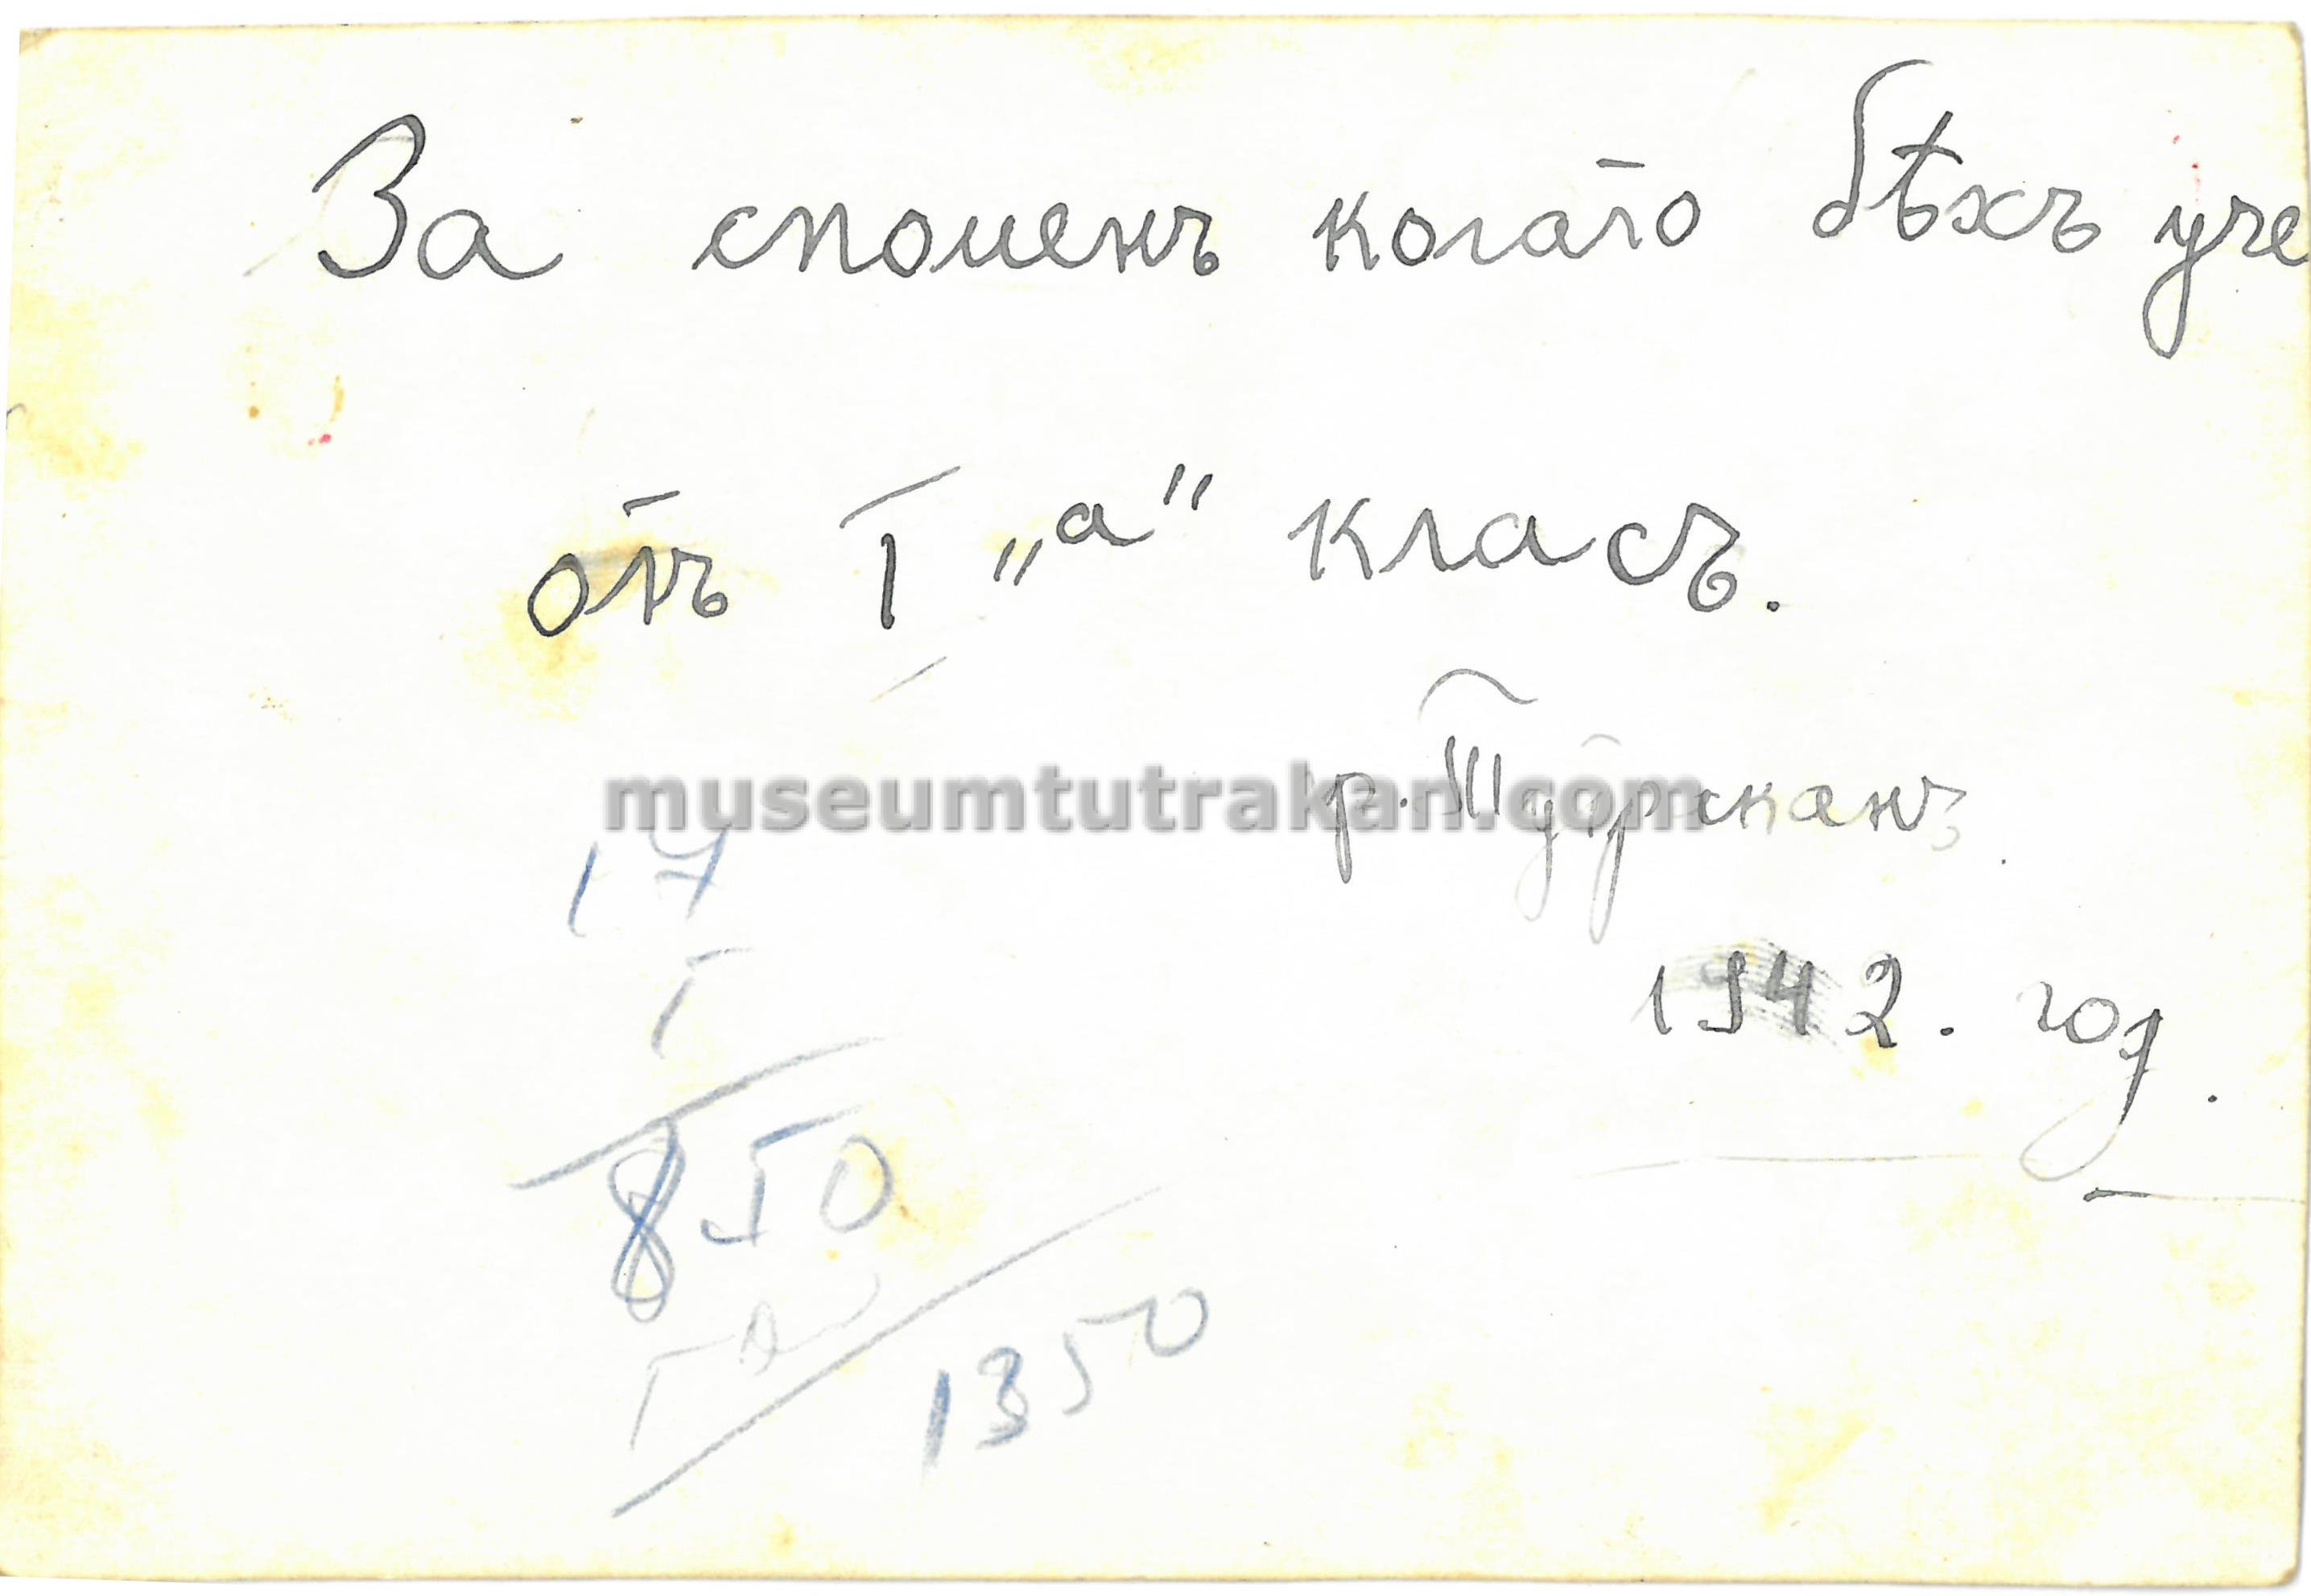 За споменъ когато бѣхъ уче
отъ I „а“ класъ.
гр. Тутраканъ.
museumtutrakan.com
1942. год.
14
850
1350